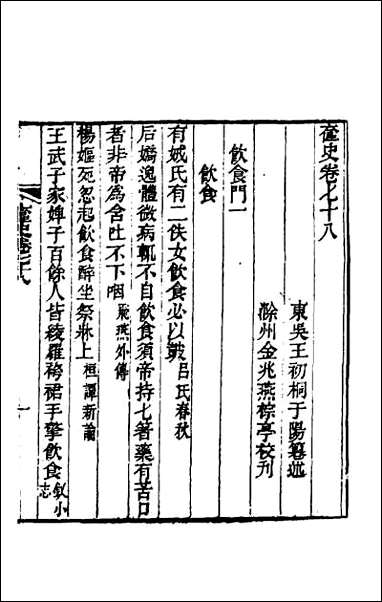 奩史卷七十八
東吳王初桐于陽纂述
滁州金兆燕棕亭校刊
飲食門一
飲食
有娀氏有二佚女飲食必以鼓呂氏春秋
后嬌逸體微病輒不自飲食須帝持匕箸藥有苦口
者非帝為含吐不下咽飛燕外傳
楊嫗死忽起飲食醉坐祭牀上桓譚新論
王武子家婢子百餘人皆綾羅袴𧛾手擎飲食叙小志
奩史卷七十八
一